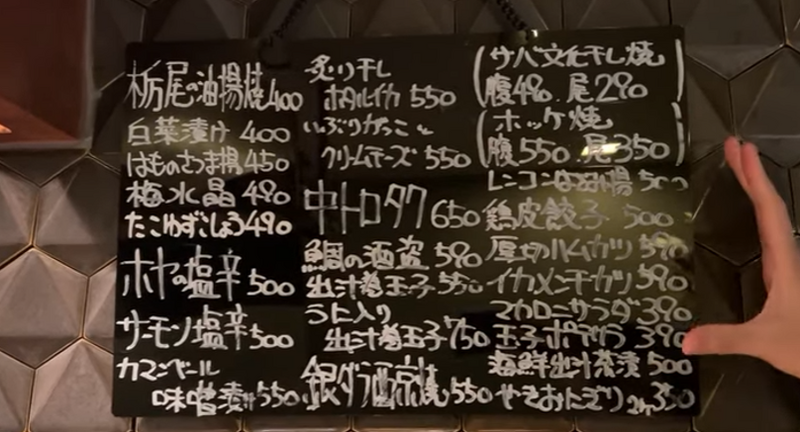 栃尾の油揚焼400
白菜漬け 400
はものさつま揚 450
梅水晶 490
たこわずしょう490
ホヤの塩辛 500
サーモン塩辛 500
カマンベール
味噌漬け 550
炙り干し
ホタルイカ 550
いぶりがっこと
クリームチーズ 550
中トロタク 650
鯛の酒盗 590
出汁巻玉子 550
うに入り
出汁巻玉子 750
銀ダラ西京焼 550
サバ文化干し焼
腹490. 尾290
ホッケ焼
腹550. 尾350
レンコン 揚 500
鶏皮餃子 500
厚切ハムカツ 590
イカメンチカツ 590
マカロニサラダ 390
玉子ポテサラ 390
海鮮出汁茶漬 500
やきおにぎり 2ケ350